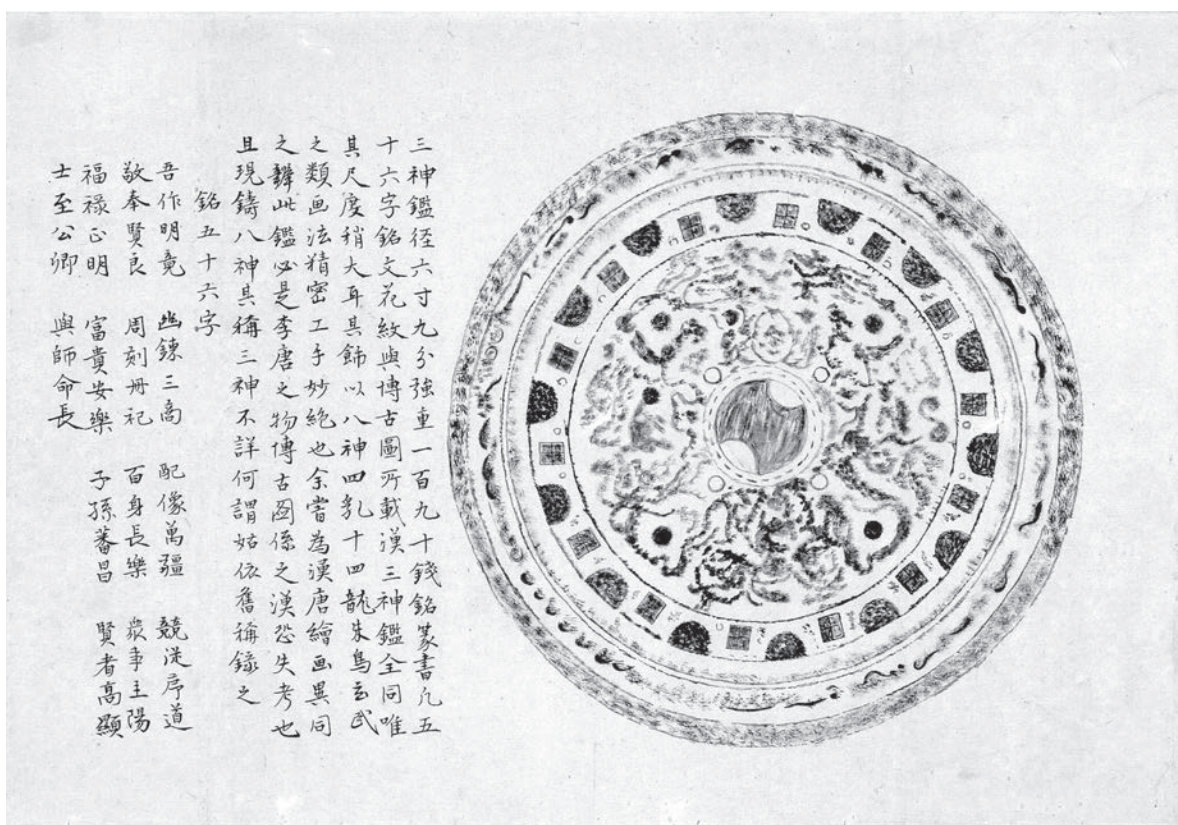 三神鑑径六寸九分強重一百九十錢銘篆書凡五
十六字銘文花紋與博古圖所載漢三神鑑全同唯
其尺度稍大耳其飾以八神四乳十四龍朱鳥玄武
之類画法精密工手妙絶也余嘗為漢唐繪画異同
之辯此鑑必是李唐之物博古圖係之漢恐失考也
且現鑄八神具稱三神不詳何謂姑依舊稱錄之
銘五十六字
吾作明竟 幽錬三商 配像萬疆 競従序道
敬奉賢良 周刻冊祀 百身長樂 衆事主陽
福禄正明 富貴安樂 子孫蕃昌 賢者高顯
士至公卿 與師命長